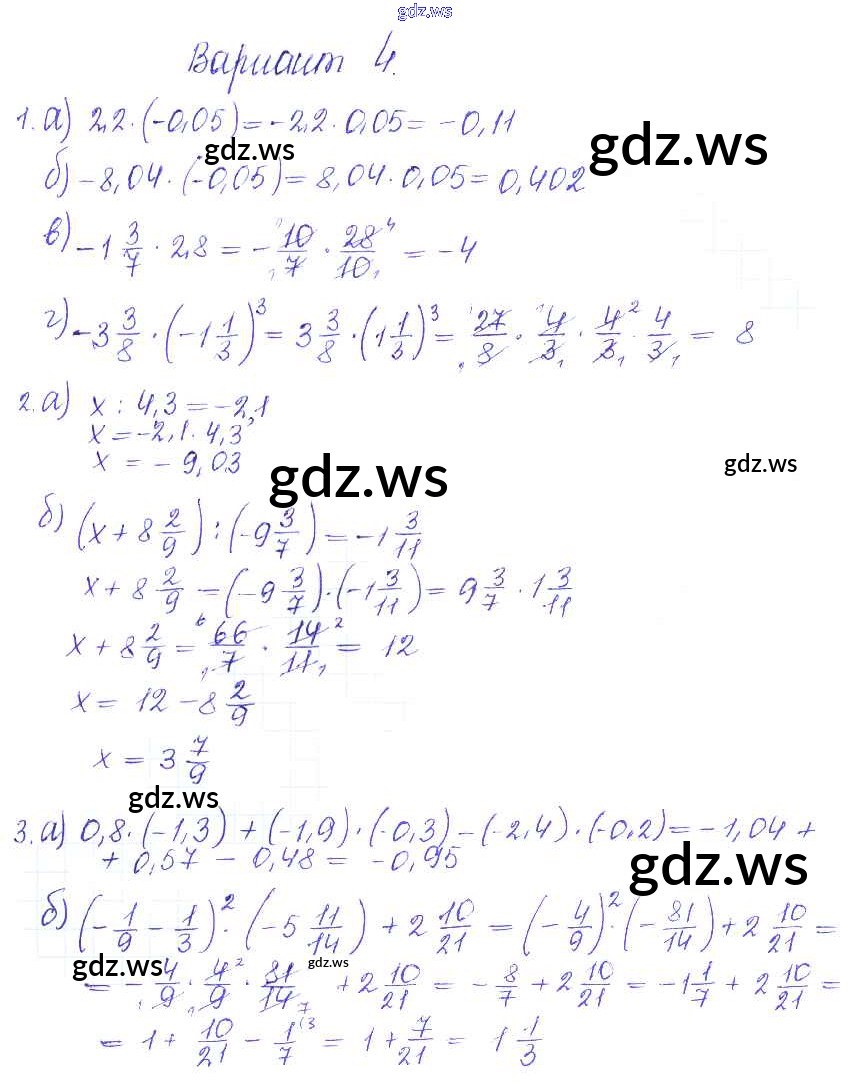 gdz.ws
Вариант 4.
1. а) 2,2 · (-0,05) = -2,2 · 0,05 = -0,11
gdz.ws
gdz.ws
б) -8,04 · (-0,05) = 8,04 · 0,05 = 0,402
в) -1 3/7 · 2,8 = - 10/7 · 28/10 = -4
г) -3 3/8 · (-1 1/3)³ = 3 3/8 · (1 1/3)³ = 27/8 · 4/3 · 4/3 · 4/3 = 8
2. а) x : 4,3 = -2,1
x = -2,1 · 4,3
x = -9,03
gdz.ws
gdz.ws
б) (x + 8 2/9) : (-9 3/7) = -1 3/11
x + 8 2/9 = (-9 3/7) · (-1 3/11) = 9 3/7 · 1 3/11
x + 8 2/9 = 66/7 · 14/11 = 12
x = 12 - 8 2/9
x = 3 7/9
gdz.ws
3. а) 0,8 · (-1,3) + (-1,9) · (-0,3) - (-2,4) · (-0,2) = -1,04 +
+ 0,57 - 0,48 = -0,95
gdz.ws
б) (- 1/9 - 1/3)² · (-5 11/14) + 2 10/21 = (- 4/9)² · (- 81/14) + 2 10/21 =
gdz.ws
gdz.ws
= - 4/9 · 4/9 · 81/14 + 2 10/21 = - 8/7 + 2 10/21 = -1 1/7 + 2 10/21 =
= 1 + 10/21 - 1/7 = 1 + 7/21 = 1 1/3